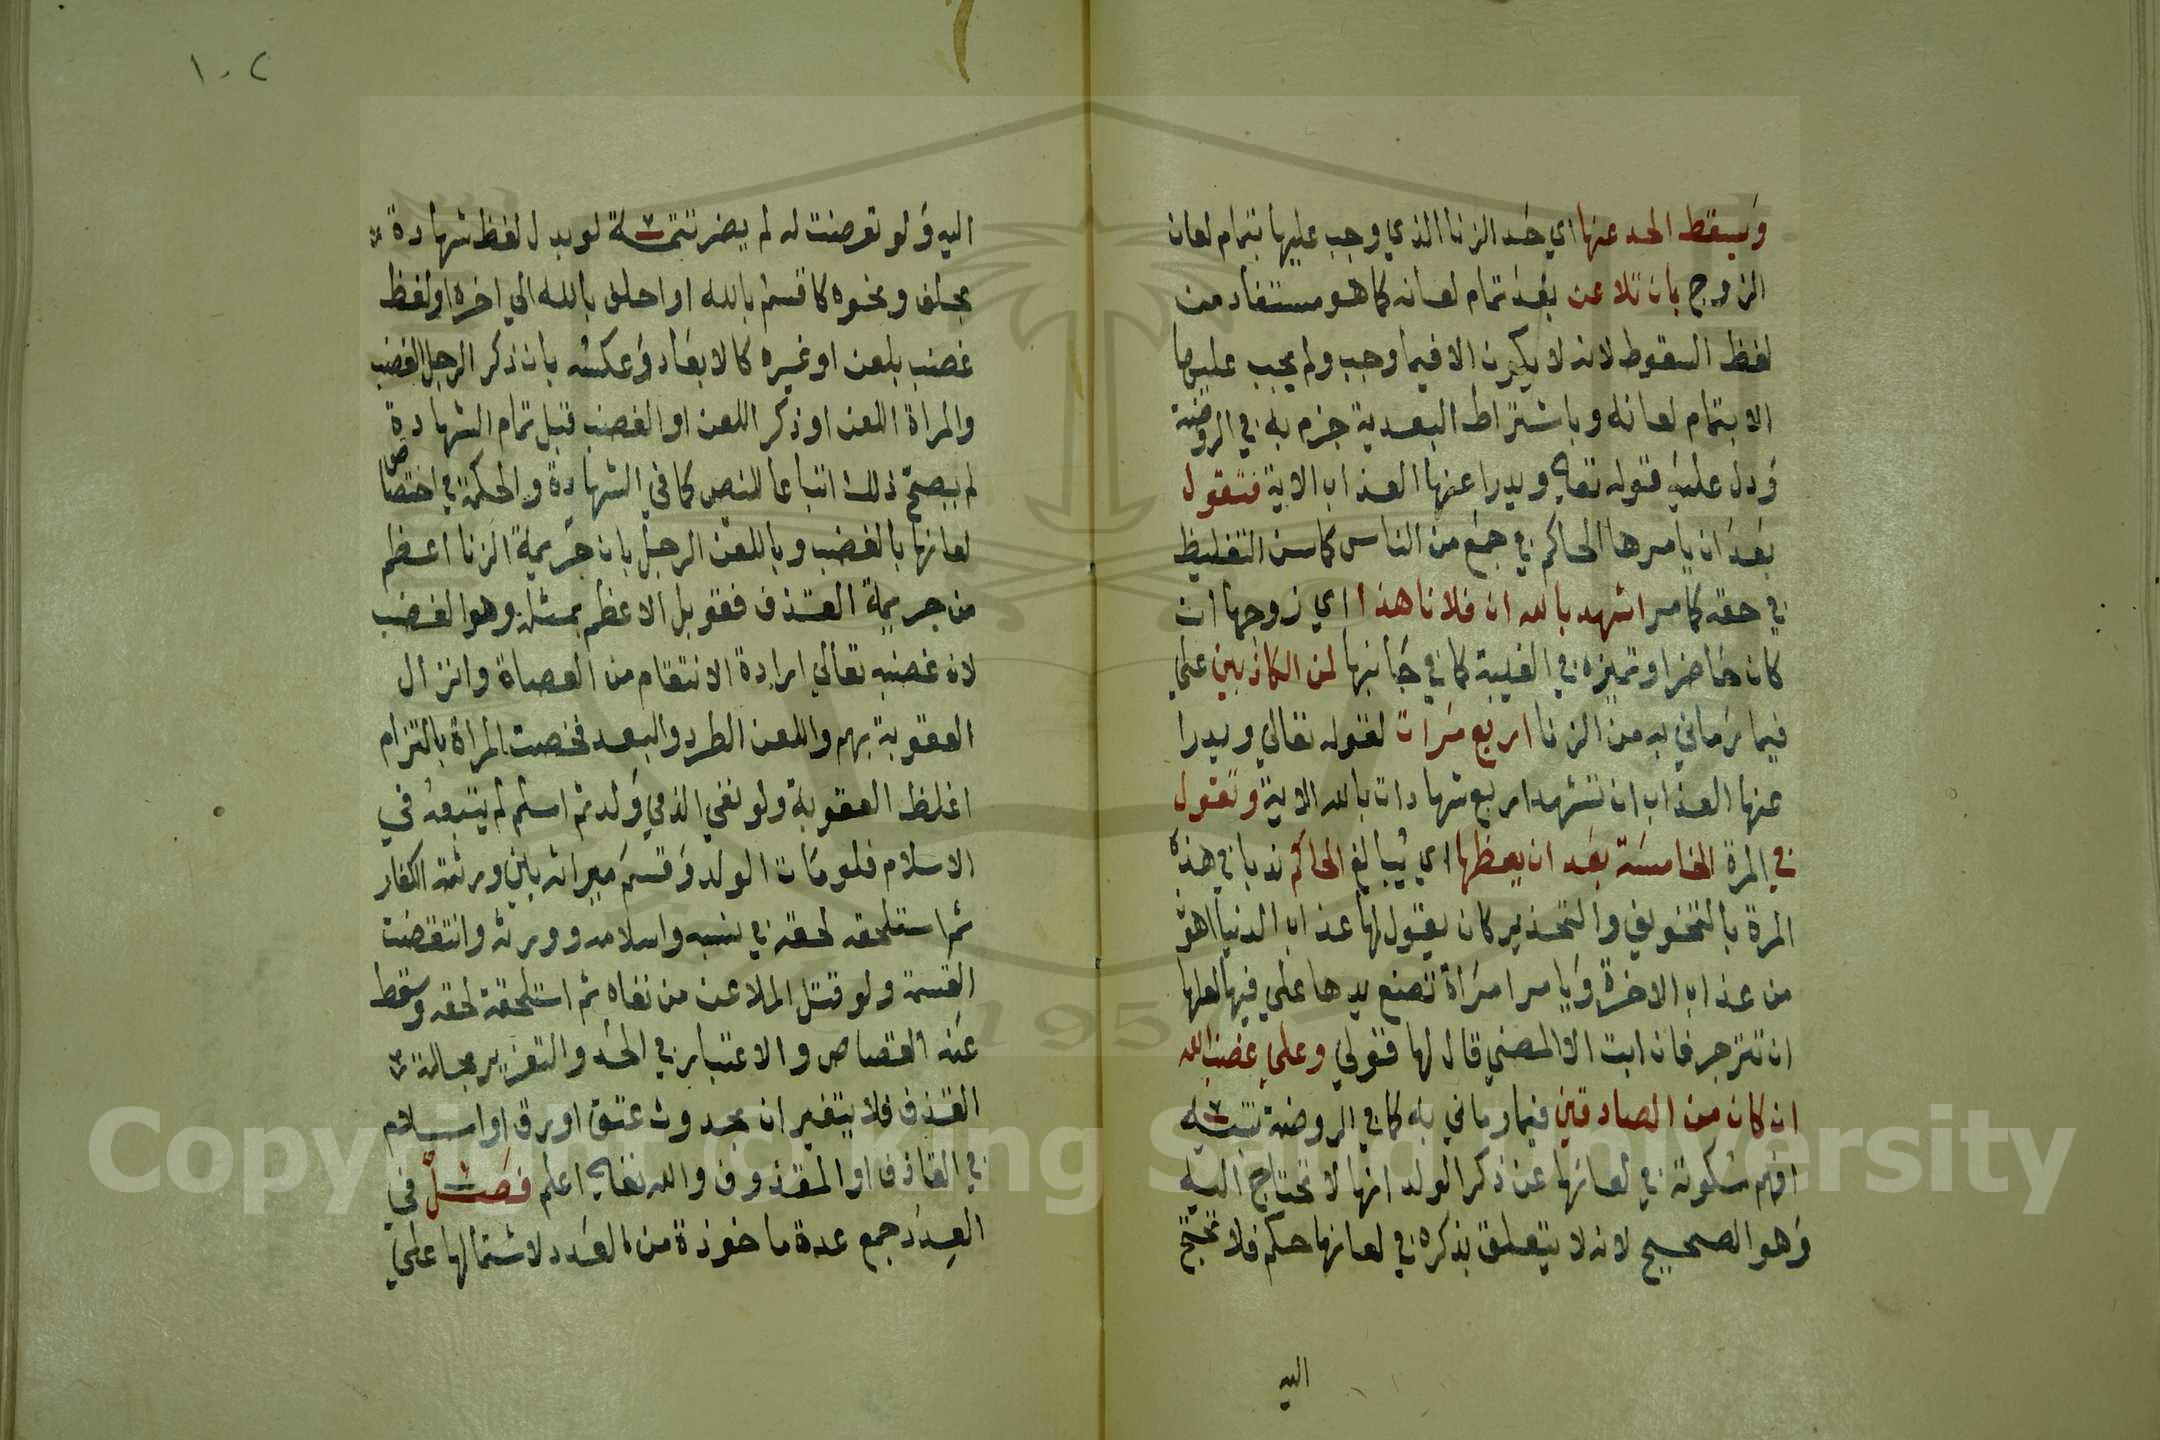 ويسقط الحد عنها اي حد الزنا الذي وجب عليها بتمام لعان
الزوج بان تلاعن بعد تمام لعانه كما هو مستفاد من
لفظ السقوط لانه لا يكون الا فيما وجب ولم يجب عليها
الا بتمام لعانه وباشتراط البعدية جزم به في الروضة
ودل عليه قوله تعالى ويدرا عنها العذاب الاية فتقول
بعد ان يامرها الحاكم في جمع من الناس كما سن التغليظ
في حقه كما مر اشهد بالله ان فلانا هذا اي زوجها ان
كان حاضرا وتميزه في الغيبة كما في جانبها لمن الكاذبين علي
فيما رماني به من الزنا اربع مرات لقوله تعالي ويدرا
عنها العذاب ان تشهد اربع شهادات بالله الاية وتقول
في المرة الخامسة بعد ان يعظها اي يبالغ الحاكم ندبا في هذه
المرة بالتخويف والتحذير كان يقول لها عذاب الدنيا اهون
من عذاب الاخرة ويامر امراة تضع يدها علي فيها لعلها
ان تنزجر فان ابت الا المضي قال لها قولي وعلي غضب الله
ان كان من الصادقين فيما رماني به كما في الروضة تنبيه
افهم سكوته في لعانها عن ذكر الولد انها لا تحتاج اليه
وهو الصحيح لانه لا يتعلق بذكره في لعانها حكم فلا تحتج
اليه
١٠٢
اليه ولو تعرضت له لم يضر تتمة لو بدل لفظ شهادة
بحلف ونحوه كاقسم بالله او احلف بالله الي اخره او لفظ
غضب بلعن او غيره كالابعاد وعكسه بان ذكر الرجل الغضب
والمراة اللعن او ذكر اللعن او الغضب قبل تمام الشهادة
لم يصح ذلك اتباعا للنص كما في الشهادة والحكمة في اختصاص
لعانها بالغضب وباللعن الرجل بان جريمة الزنا اعظم
من جريمة القذف فقوبل الاعظم بمثله وهو الغضب
لان غضبه تعالي ارادة الانتقام من العصاة وانزال
العقوبة بهم واللعن الطرد والبعد فخصت المراة بالتزام
اغلظ العقوبة ولو نفي الذمي ولد ثم اسلم لم يتبعه في
الاسلام فلو مات الولد وقسم ميراثه بين ورثته الكفار
ثم استلحقه لحقه في نسبه واسلامه وورثه وانتقضت
القسمة ولو قتل الملاعن من نفاه ثم استلحقه لحقه وسقط
عنه القصاص والاعتبار في الحد والتعزير بحالة
القذف فلا يتغيران بحدوث عتق او رق او اسلام
في القاذف او المقذوف والله تعالى اعلم فصل في
العدد جمع عدة ماخوذة من العدد لاشتمالها علي
1957
Copyright © King Saud University